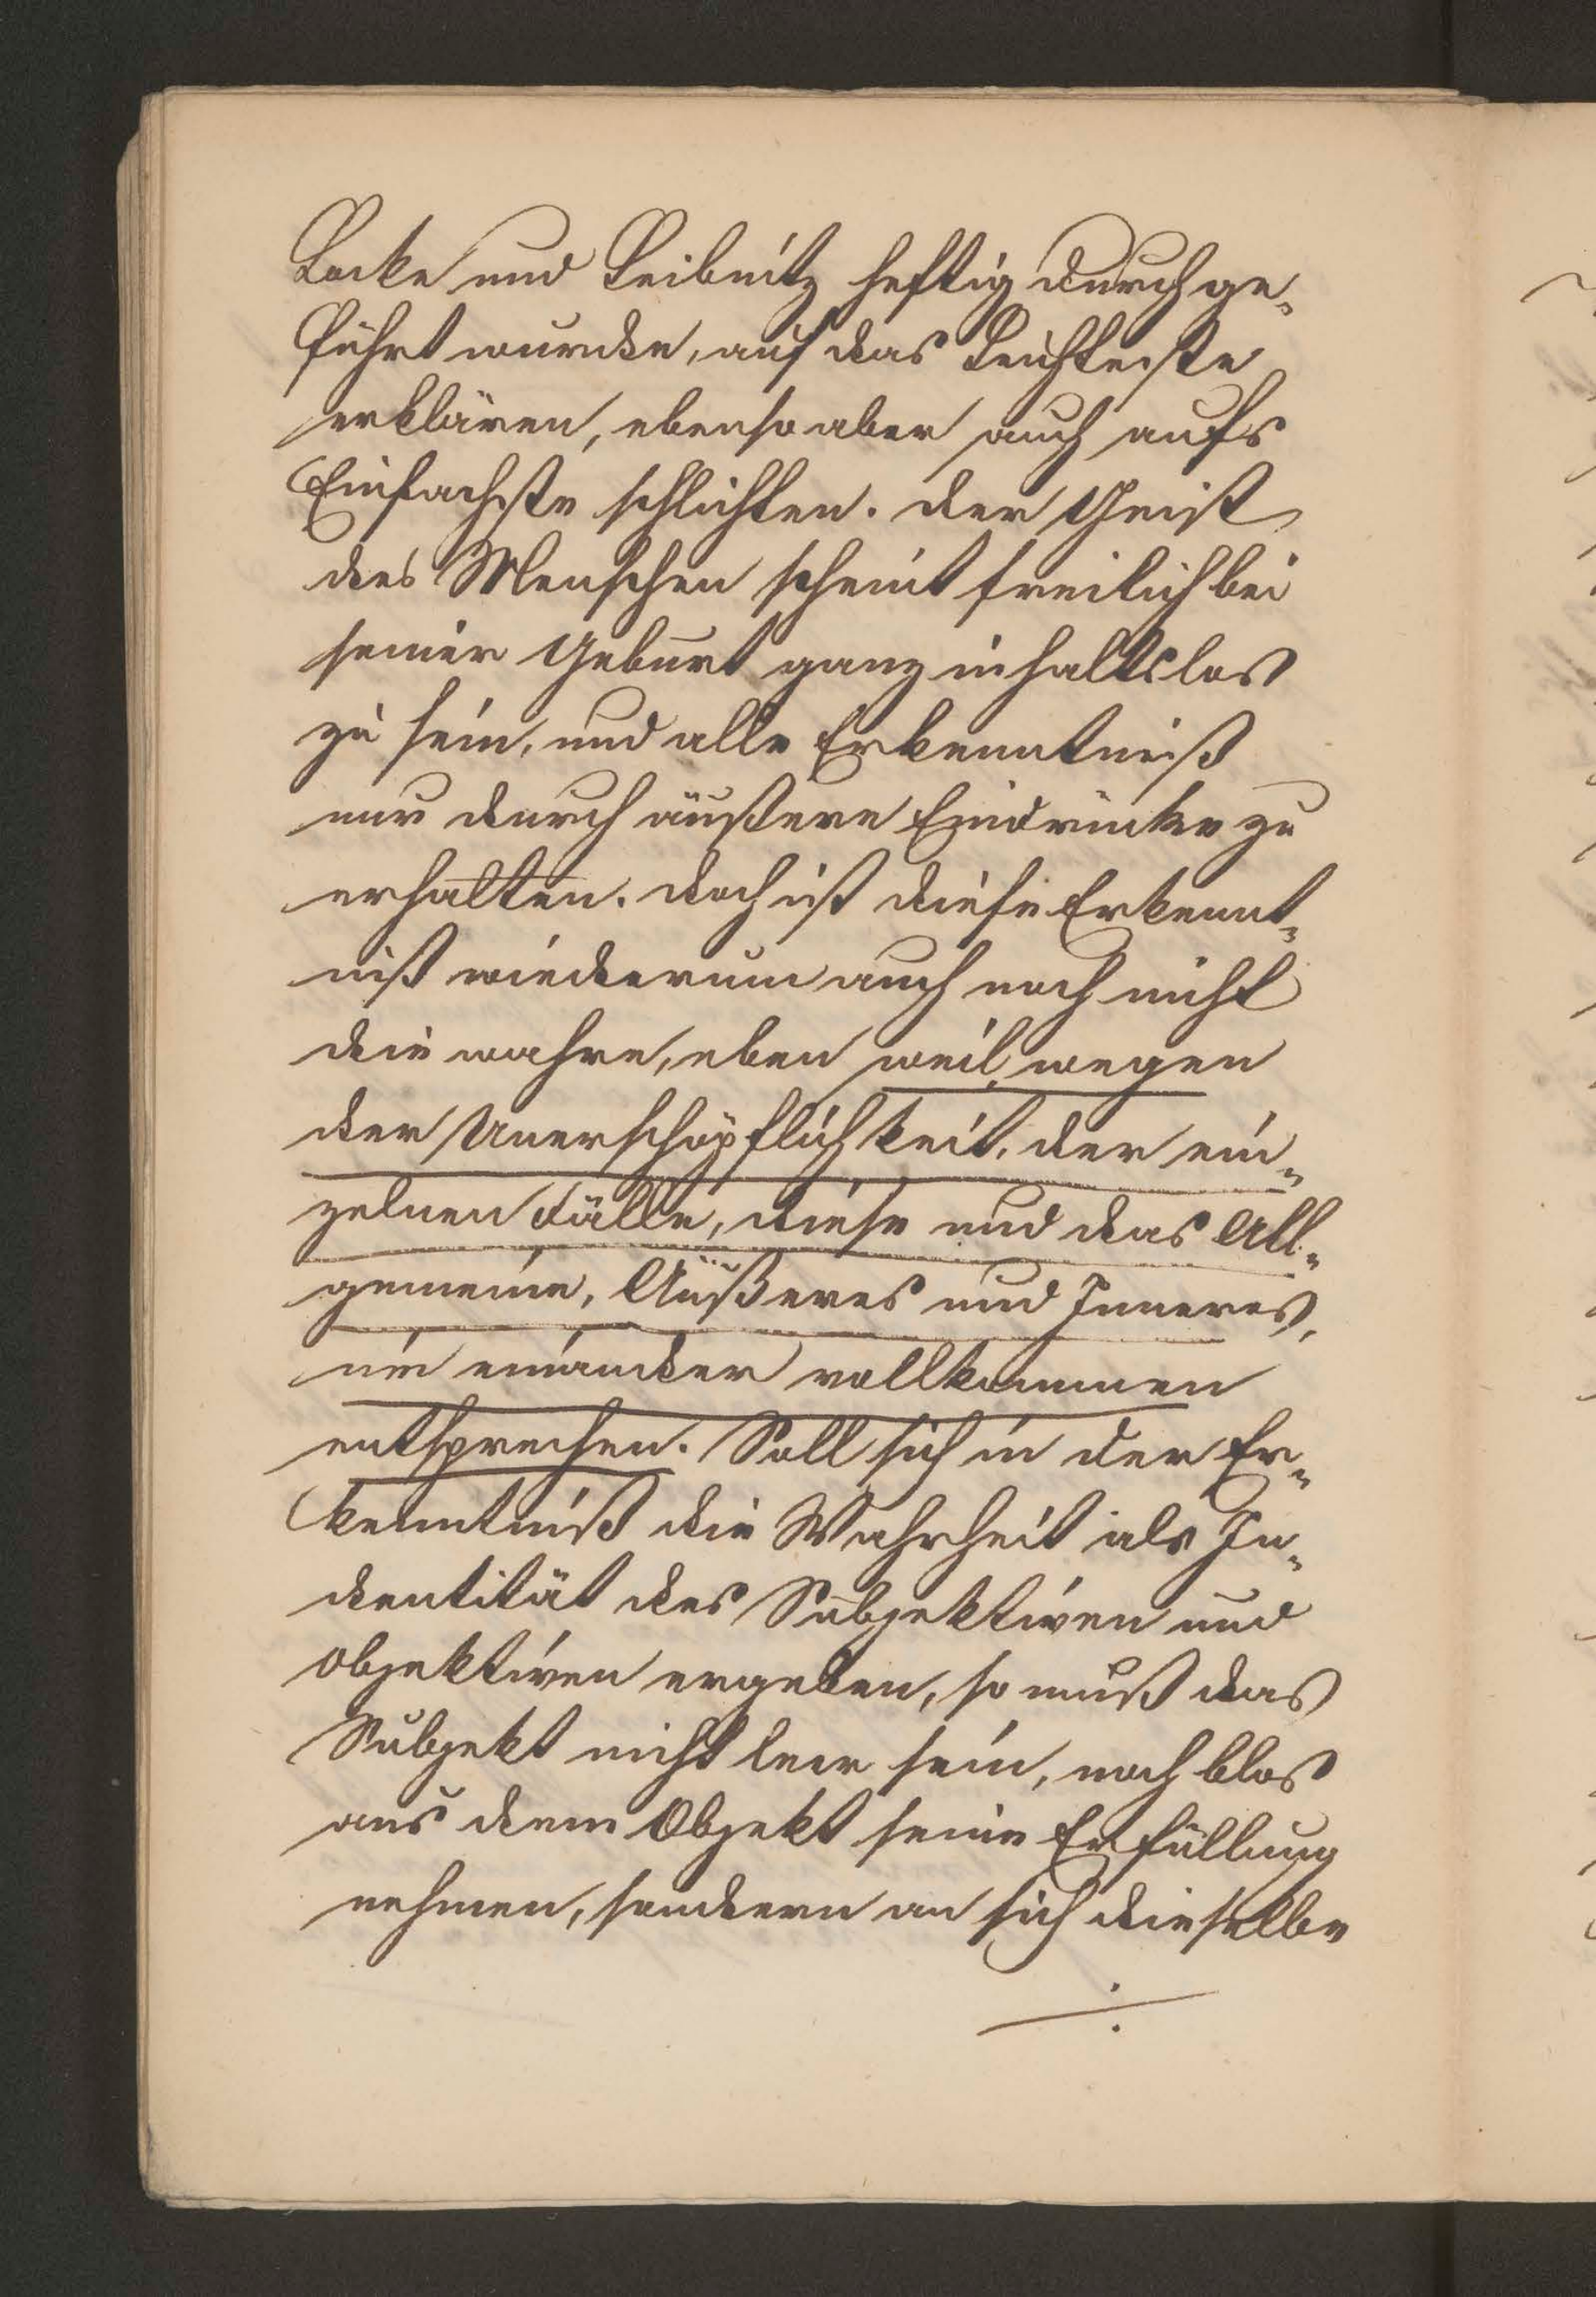 Locke und Leibnitz heftig durchge-
führt wurde, auf das Leichteste
erklären, ebenso aber auch aufs
Einfachste schlichten. Der Geist
des Menschen scheint freilich bei
seiner Geburt ganz inhaltslos
zu sein, und alle Erkenntniß
nur durch äußere Eindrücke zu
erhalten. Doch ist diese Erkennt-
niß wiederum auch noch nicht
die wahre, eben weil, wegen
der Unerschöpflichkeit, der ein-
zelnen Fälle, diese und das All-
gemeine, Äußeres und Inneres,
nie einander vollkommen
entsprechen. Soll sich in der Er-
kenntniß die Wahrheit als In-
dentität des Subjektiven und
objektiven ergeben, so muß das
Subjekt nicht leer sein, noch blos
aus dem Objekt seine Erfüllung
nehmen, sondern an sich dieselbe